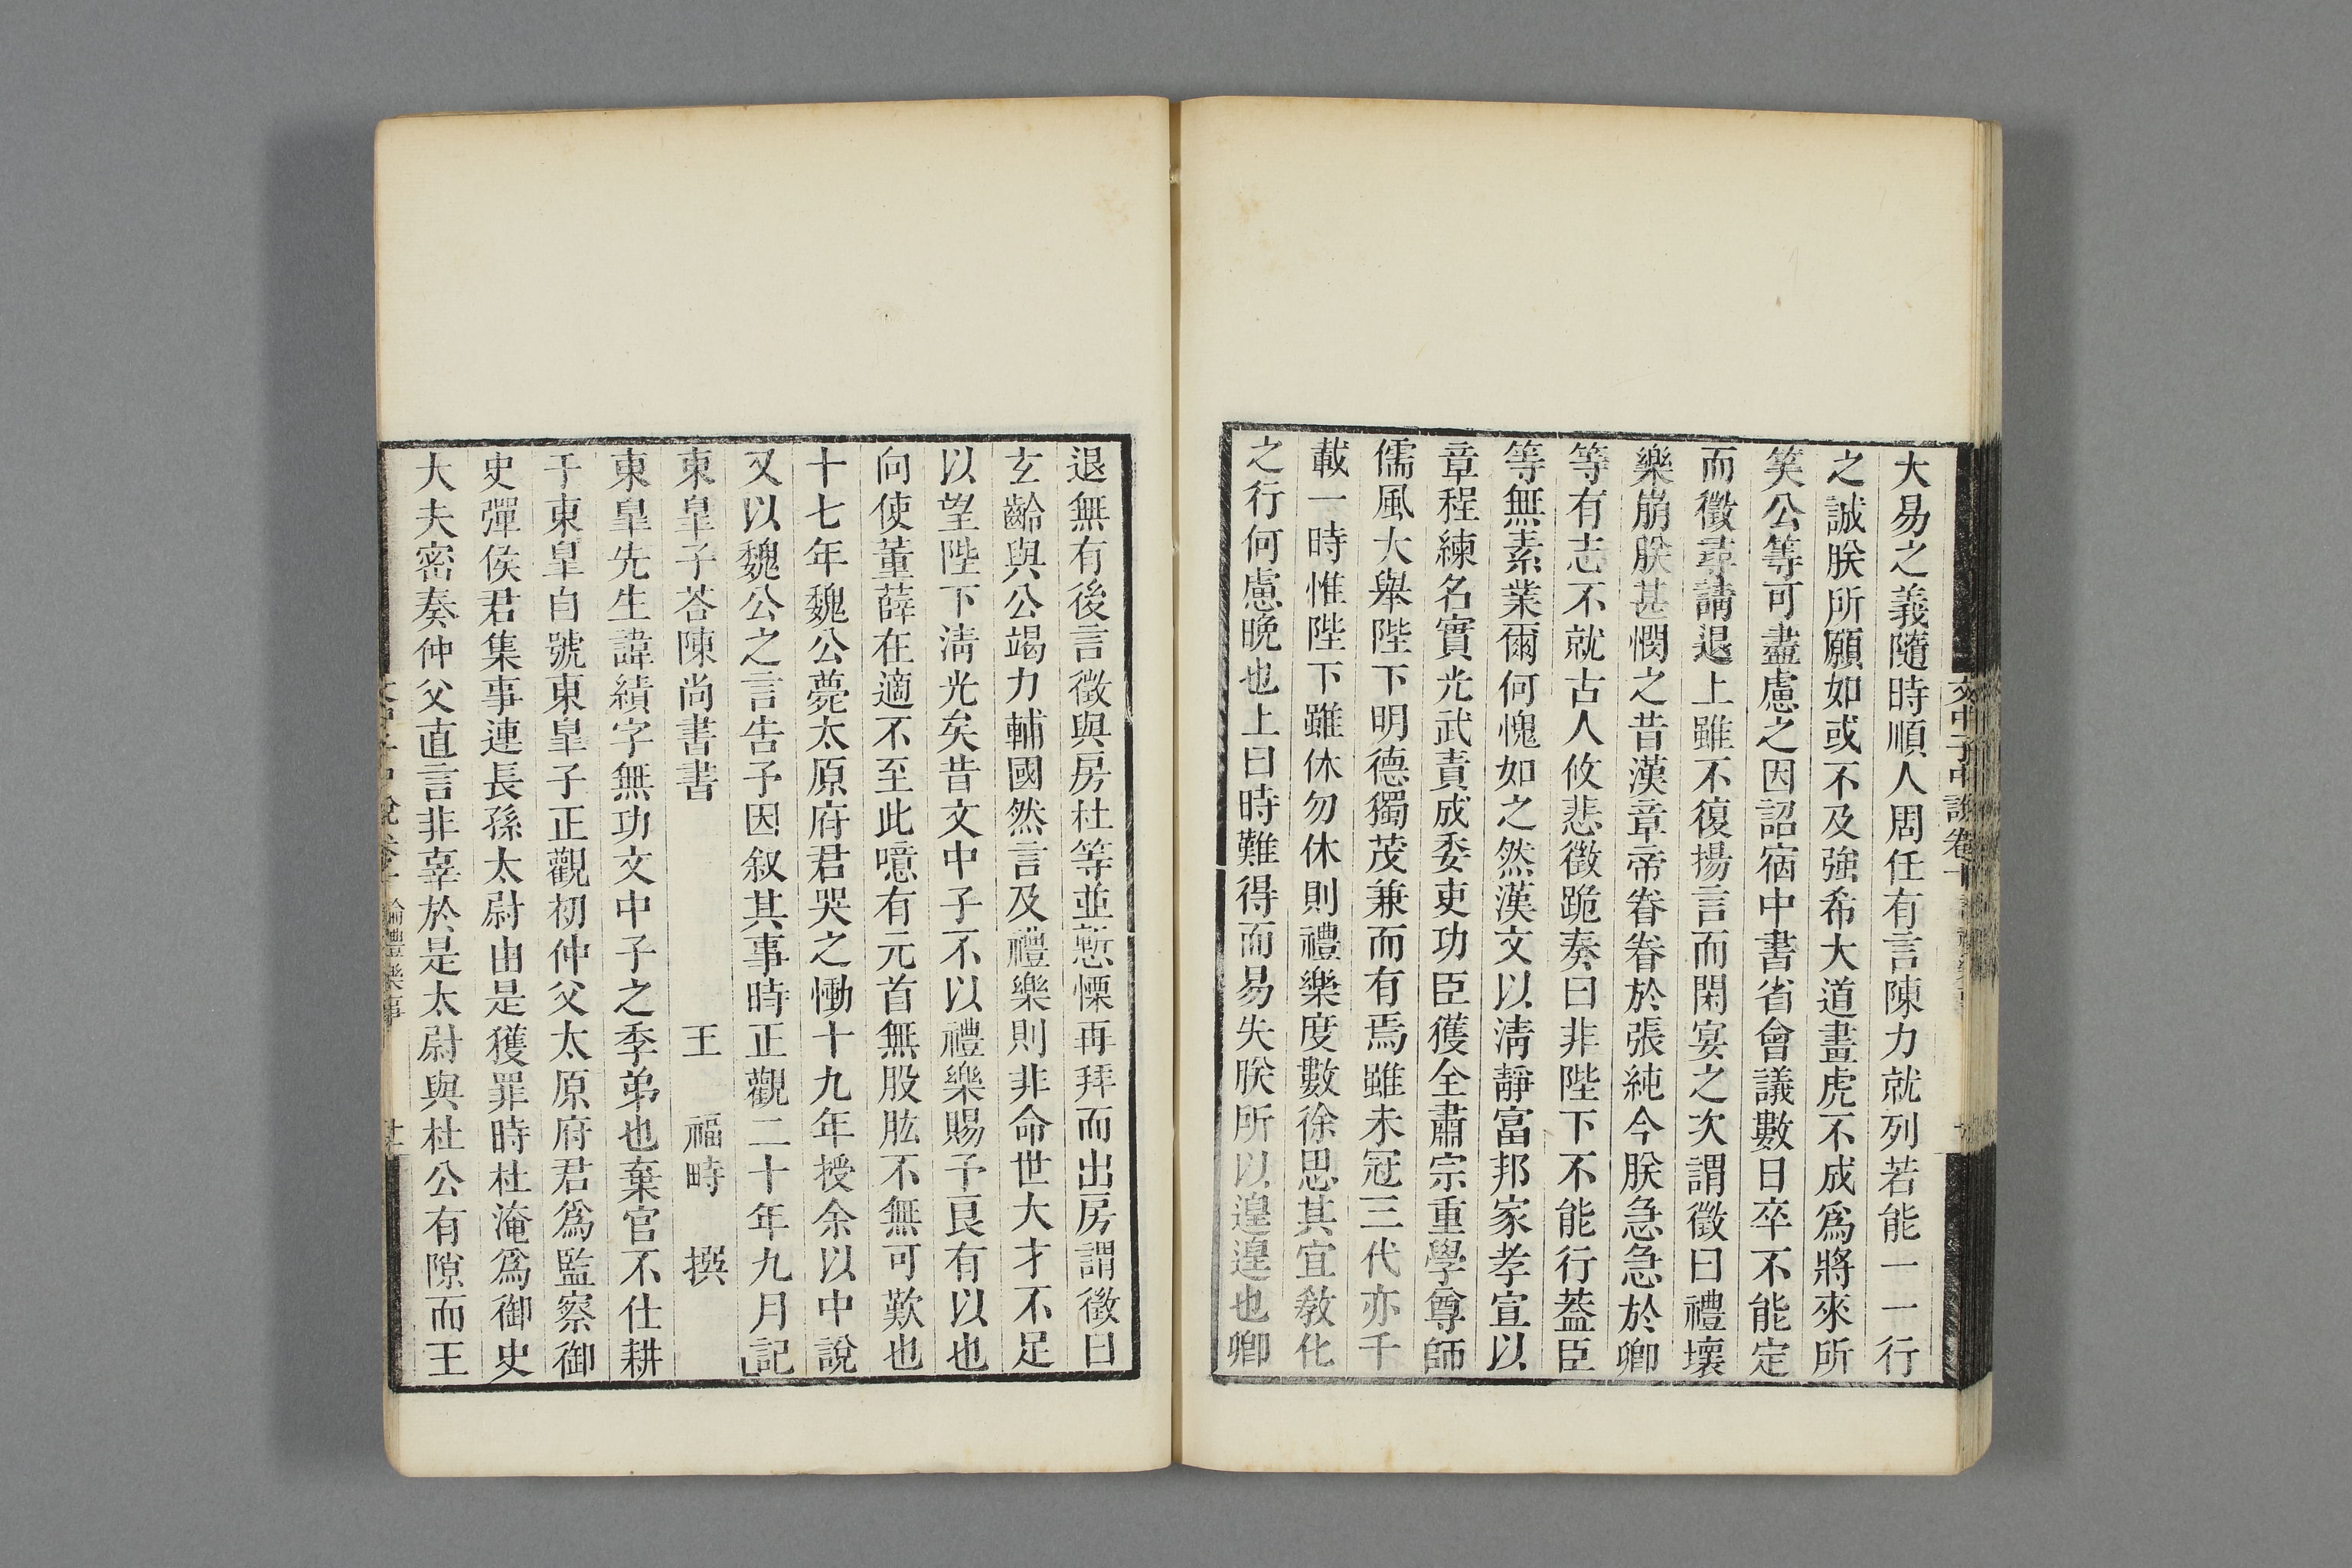 大易之義隨時順人周任有言陳力就列若能一一行
之誠朕所願如或不及強希大道畫虎不成爲將來所
笑公等可盡慮之因詔宿中書省會議數日卒不能定
而徵尋請退上雖不復揚言而閑宴之次謂徵曰禮壞
樂崩朕甚憫之昔漢章帝眷眷於張純今朕急急於卿
等有志不就古人攸悲徵跪奏曰非陛下不能行葢臣
等無素業爾何愧如之然漢文以淸靜富邦家孝宣以
章程練名實光武責成委吏功臣獲全肅宗重學尊師
儒風大舉陛下明德獨茂兼而有焉雖未冠三代亦千
載一時惟陛下雖休勿休則禮樂度數徐思其宜敎化
之行何慮晚也上曰時難得而易失朕所以遑遑也卿
文中子中說卷十
退無有後言徵與房杜等並慙慄再拜而出房謂徵曰
玄齡與公竭力輔國然言及禮樂則非命世大才不足
以望陛下淸光矣昔文中子不以禮樂賜予良有以也
向使董薛在適不至此噫有元首無股肱不無可歎也
十七年魏公薨太原府君哭之慟十九年授余以中說
又以魏公之言告予因叙其事時正觀二十年九月記
東皐子荅陳尚書書　王　福畤　撰
東皐先生諱績字無功文中子之季弟也棄官不仕耕
于東皐自號東皐子正觀初仲父太原府君爲監察御
史彈侯君集事連長孫太尉由是獲罪時杜淹爲御史
大夫密奏仲父直言非辜於是太尉與杜公有隙而王
論禮樂事